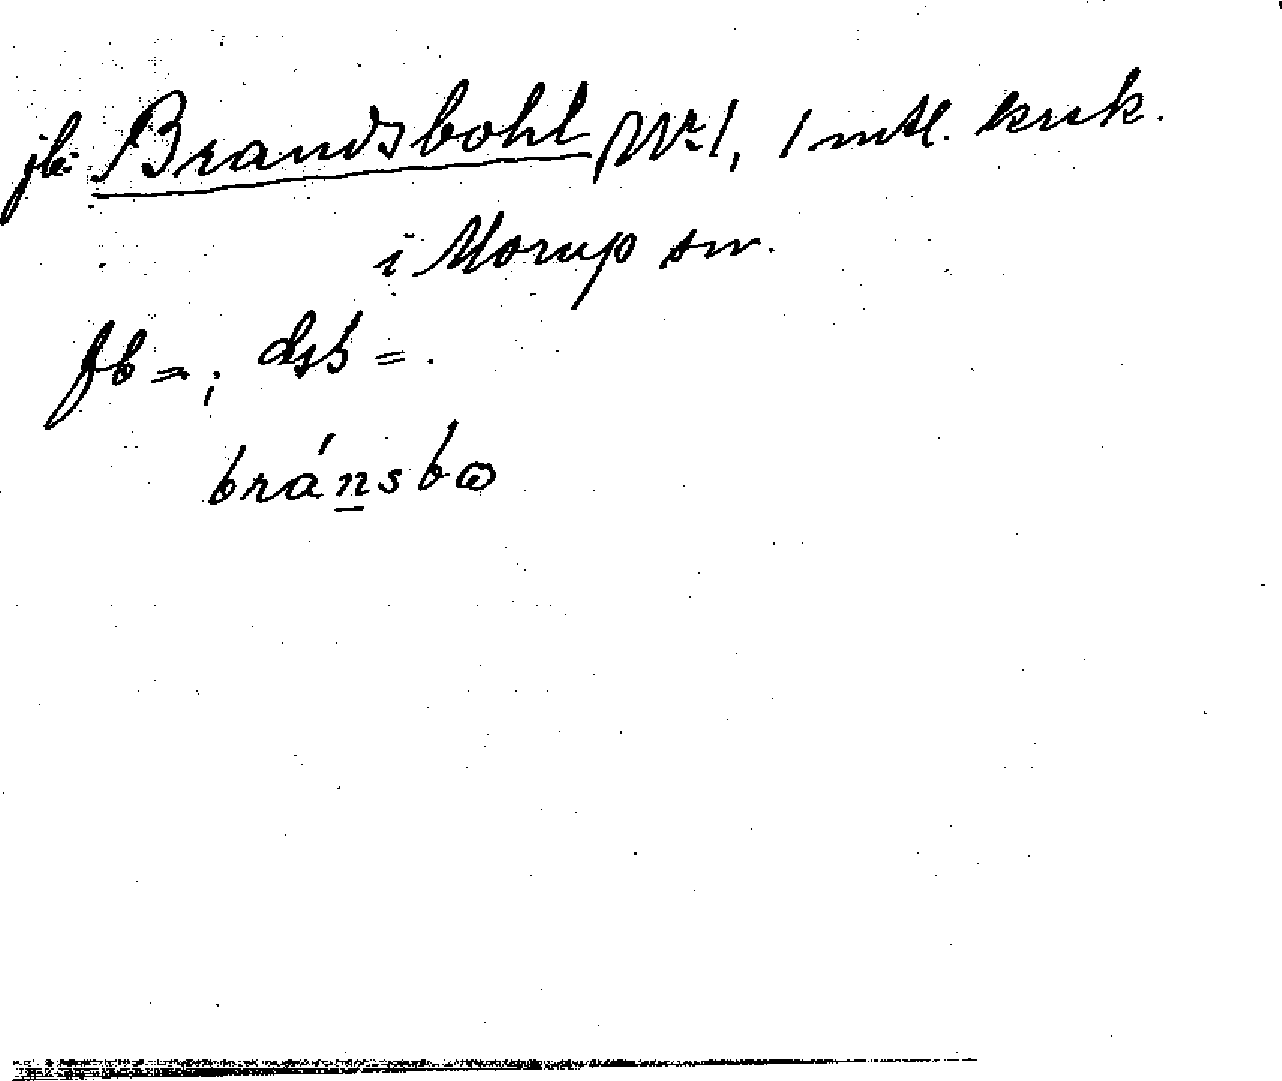 jb: Brandsbohl Nr 1, 1 mtl. krsk.
i Morup sn.
fb = ; dsb = .
bránsbɷ